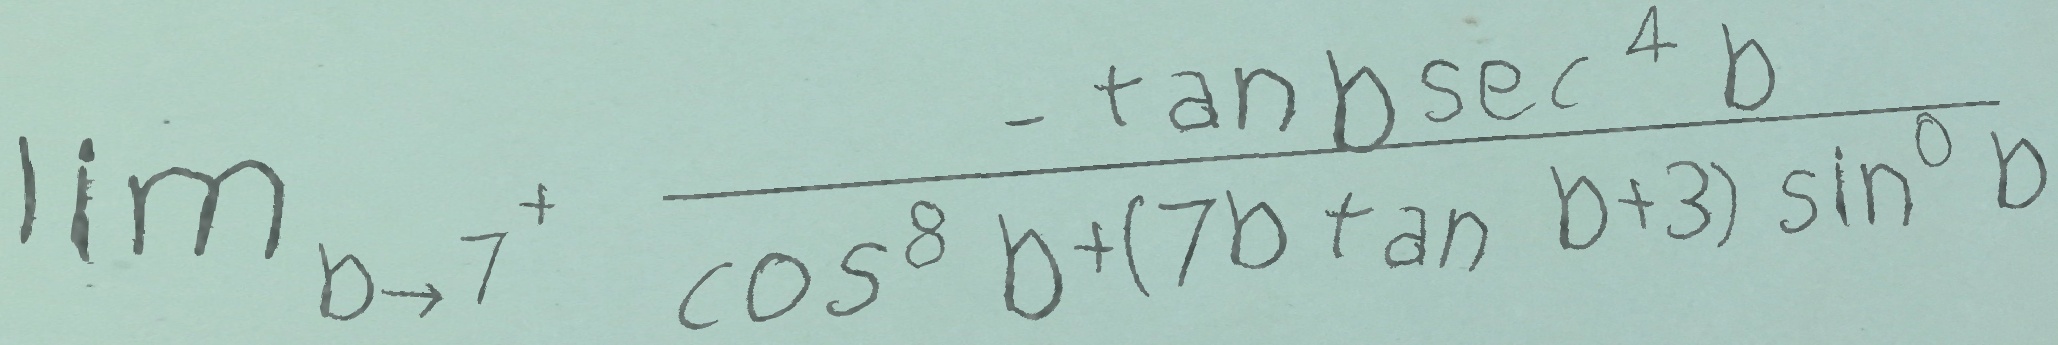 \lim_{b \to 7^+} \frac{-\tan b \sec^4 b}{\cos^8 b + (7b \tan b + 3) \sin^0 b}